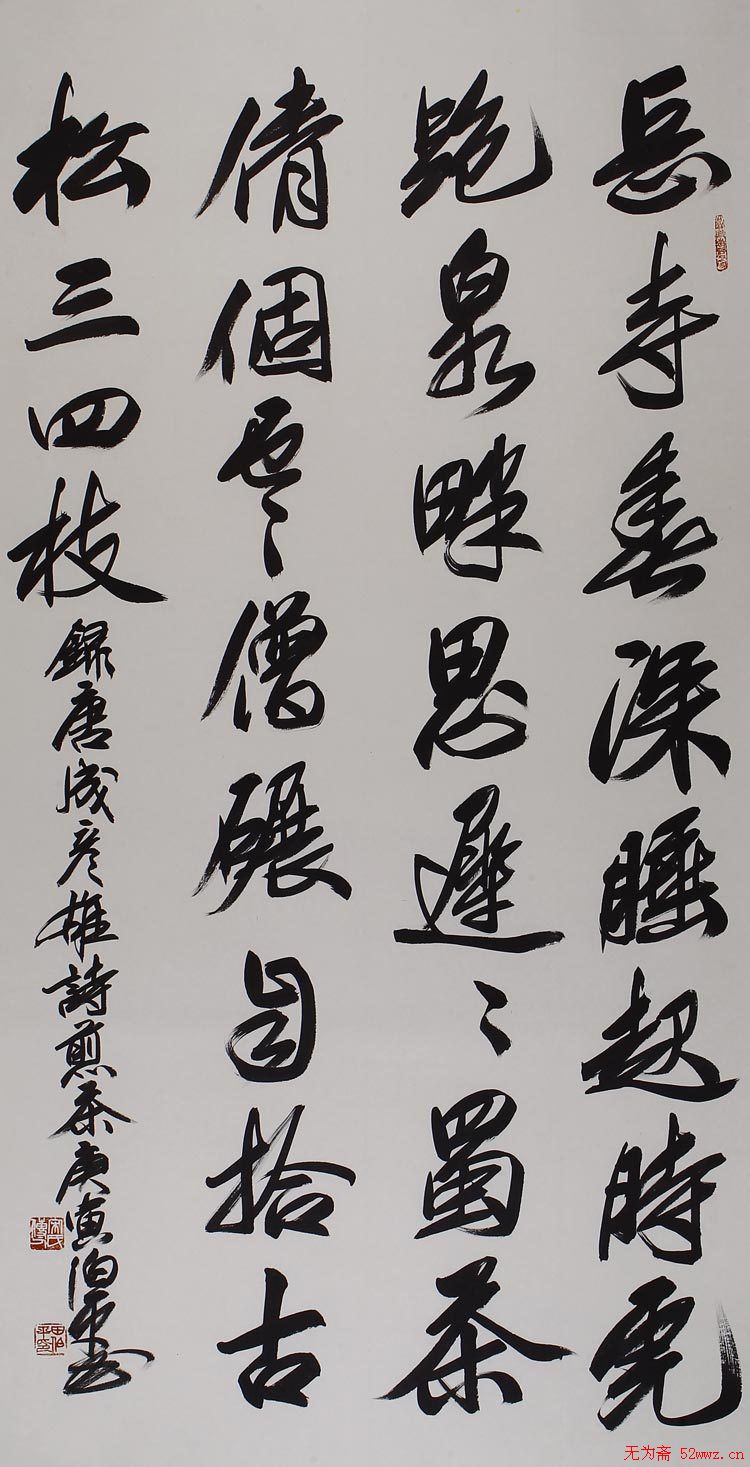 岳寺春深睡起時虎
跑泉畔思遲〻蜀茶
倩個雲僧碾自拾古
松三四枝
錄唐成彦雄詩煎茶庚寅伯平书
无为斋 52wwz.cn